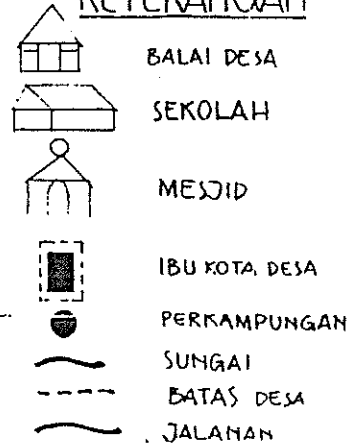 KETERANGAN
BALAI DESA
SEKOLAH
MESJID
IBU KOTA DESA
PERKAMPUNGAN
SUNGAI
BATAS DESA
JALANAN